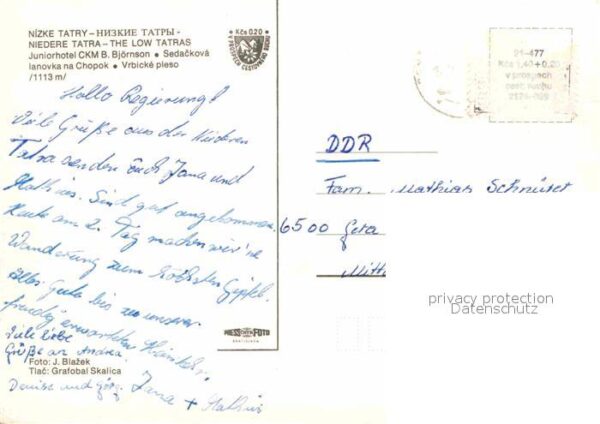 NÍZKE TATRY – НИЗКИЕ ТАТРЫ –
NIEDERE TATRA – THE LOW TATRAS
Juniorhotel CKM B. Björnson • Sedačková
lanovka na Chopok • Vrbické pleso
/1113 m/
• Kčs 0,20 •
V PROSPECH CESTOVNÉHO RUCHU
91-477
Kčs 1,40 + 0,20
v prospech
cest. ruchu
Hallo Regierung!
Viele Grüße aus der Niederen
Tatra senden Euch Jana und
Mathias. Sind gut angekommen.
Heute am 2. Tag machen wir 'ne
Wanderung zum höchsten Gipfel.
Alles Gute bis zu unserer
freudig erwarteten
Viele liebe
Grüße an Andrea
Denise und Jana +
DDR
Fam. Mathias
6500 Gera
privacy protection
Datenschutz
PRESSFOTO
BRATISLAVA
Foto: J. Blažek
Tlač: Grafobal Skalica